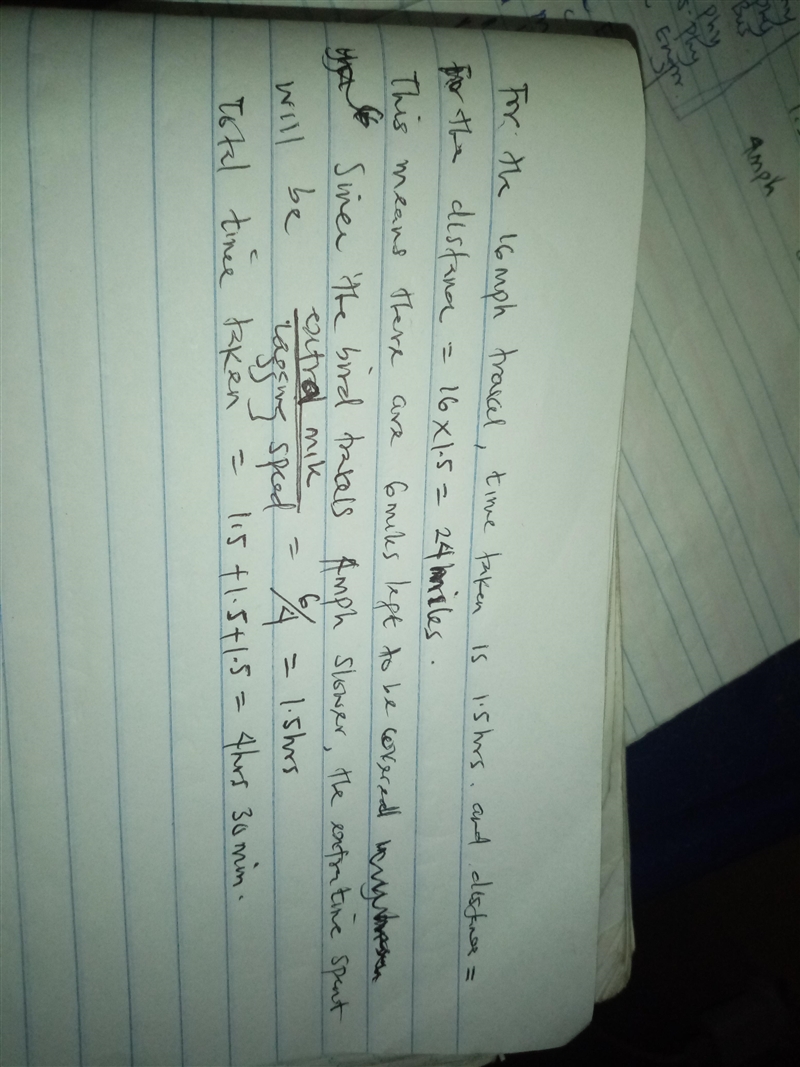 For the 16mph travel, time taken is 1.5hrs. and distance =
For the distance = 16 x 1.5 = 24miles.
This means there are 6 miles left to be covered
Since the bird travels 4mph slower, the extra time spent
will be extra mile / lagging speed = 6/4 = 1.5hrs
Total time taken = 1.5 + 1.5 + 1.5 = 4hrs 30min.
4mph
phy
Engr.